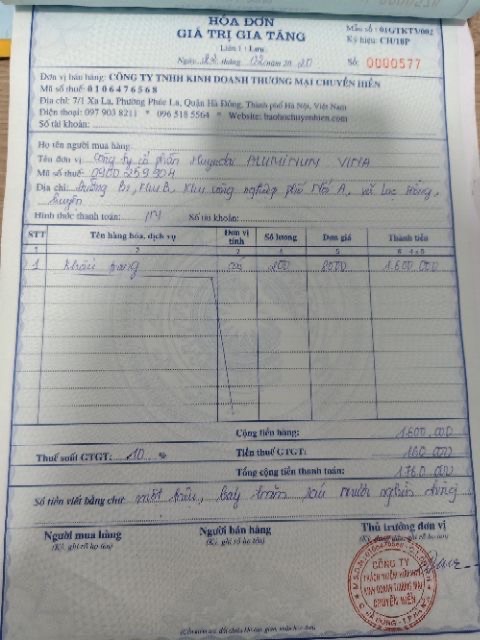 HÓA ĐƠN
GIÁ TRỊ GIA TĂNG
Mẫu số: 01GTKT3/002
Ký hiệu: CH/18P
Liên 1: Lưu
Số: 0000577
Ngày 22 tháng 02 năm 2020
Đơn vị bán hàng: CÔNG TY TNHH KINH DOANH THƯƠNG MẠI CHUYÊN HIỀN
Mã số thuế: 0106476568
Địa chỉ: 7/1 Xa La, Phường Phúc La, Quận Hà Đông, Thành phố Hà Nội, Việt Nam
Điện thoại: 097 903 8211 * 096 518 5564 * Website: baohochuyenhien.com
Số tài khoản:
Họ tên người mua hàng
Tên đơn vị: Công ty cổ phần ALUMINUM VINA
Mã số thuế: 0900259904
Địa chỉ: Đường B1, Khu B, Khu công nghiệp phố Nối A, xã Lạc Hồng,
huyện
Hình thức thanh toán: TM Số tài khoản:
STT Tên hàng hóa, dịch vụ Đơn vị tính Số lượng Đơn giá Thành tiền
1 2 3 4 5 6=4x5
1 Khẩu trang 200 8000 1.600.000
Cộng tiền hàng: 1.600.000
Thuế suất GTGT: 10 % Tiền thuế GTGT: 160.000
Tổng cộng tiền thanh toán: 1.760.000
Số tiền viết bằng chữ: một triệu, bảy trăm sáu mươi nghìn đồng
Người mua hàng Người bán hàng Thủ trưởng đơn vị
(Ký, ghi rõ họ tên) (Ký, ghi rõ họ tên)
CÔNG TY
TRÁCH NHIỆM HỮU HẠN
KINH DOANH THƯƠNG MẠI
CHUYÊN HIỀN
(Cần kiểm tra, đối chiếu khi lập, giao, nhận hóa đơn)